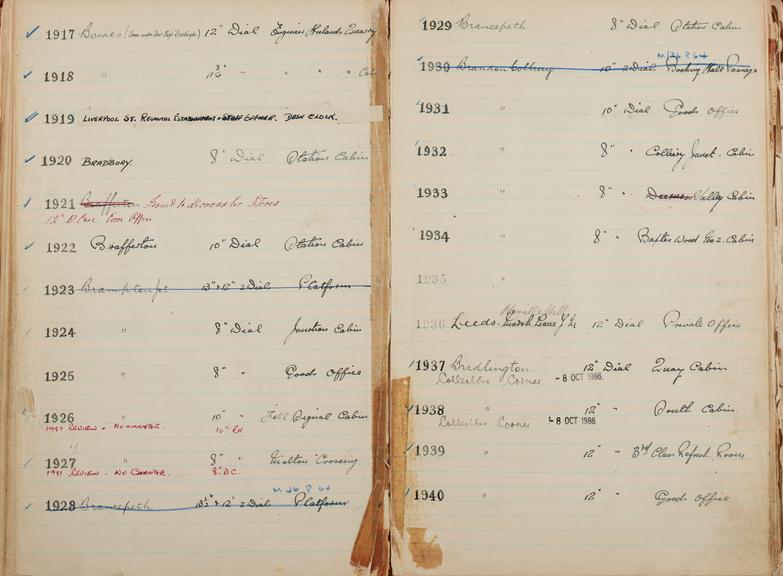 1917 Bowes 12" Dial Engineer Hulands Quarry
1918 " " " "
1919 LIVERPOOL ST. STAFF OFFICER. DESK CLOCK.
1920 BRADBURY. 8" Dial Station Cabin
1921 Brafferton to Doncaster Stores
12" Office
1922 Brafferton 10" Dial Station Cabin
1923 Brampton Jct. 12" 2 Dial Platform
1924 " 8" Dial Junction Cabin
1925 " 8" " Goods Office
1926 " 10" " Fell Signal Cabin
REVIEW - NO CHANGE. 10"
1927 " 8" " Milton Crossing
REVIEW - NO CHANGE. 8" D.C.
1928 Brancepeth 13½" & 12" 2 Dial Platform
1929 Brancepeth 8" Dial Station Cabin
1930 Brandon Colliery 10" 2 Dial Booking Hall Passage
1931 " 10" Dial Goods Office
1932 " 8" " Colliery Junct. Cabin
1933 " 8" " Deerness Valley Cabin
1934 8" " Baxter Wood No 2. Cabin
1935 "
Neville Hill
1936 Leeds. Marsh Lane 12" Dial Private Office
1937 Bridlington 12" Dial Quay Cabin
Collectors Corner - 8 OCT 1986.
1938 " 12" " South Cabin
Collectors Corner - 8 OCT 1986
1939 " 12" " 3rd Class Refresh. Room
1940 " 12" " Goods Office